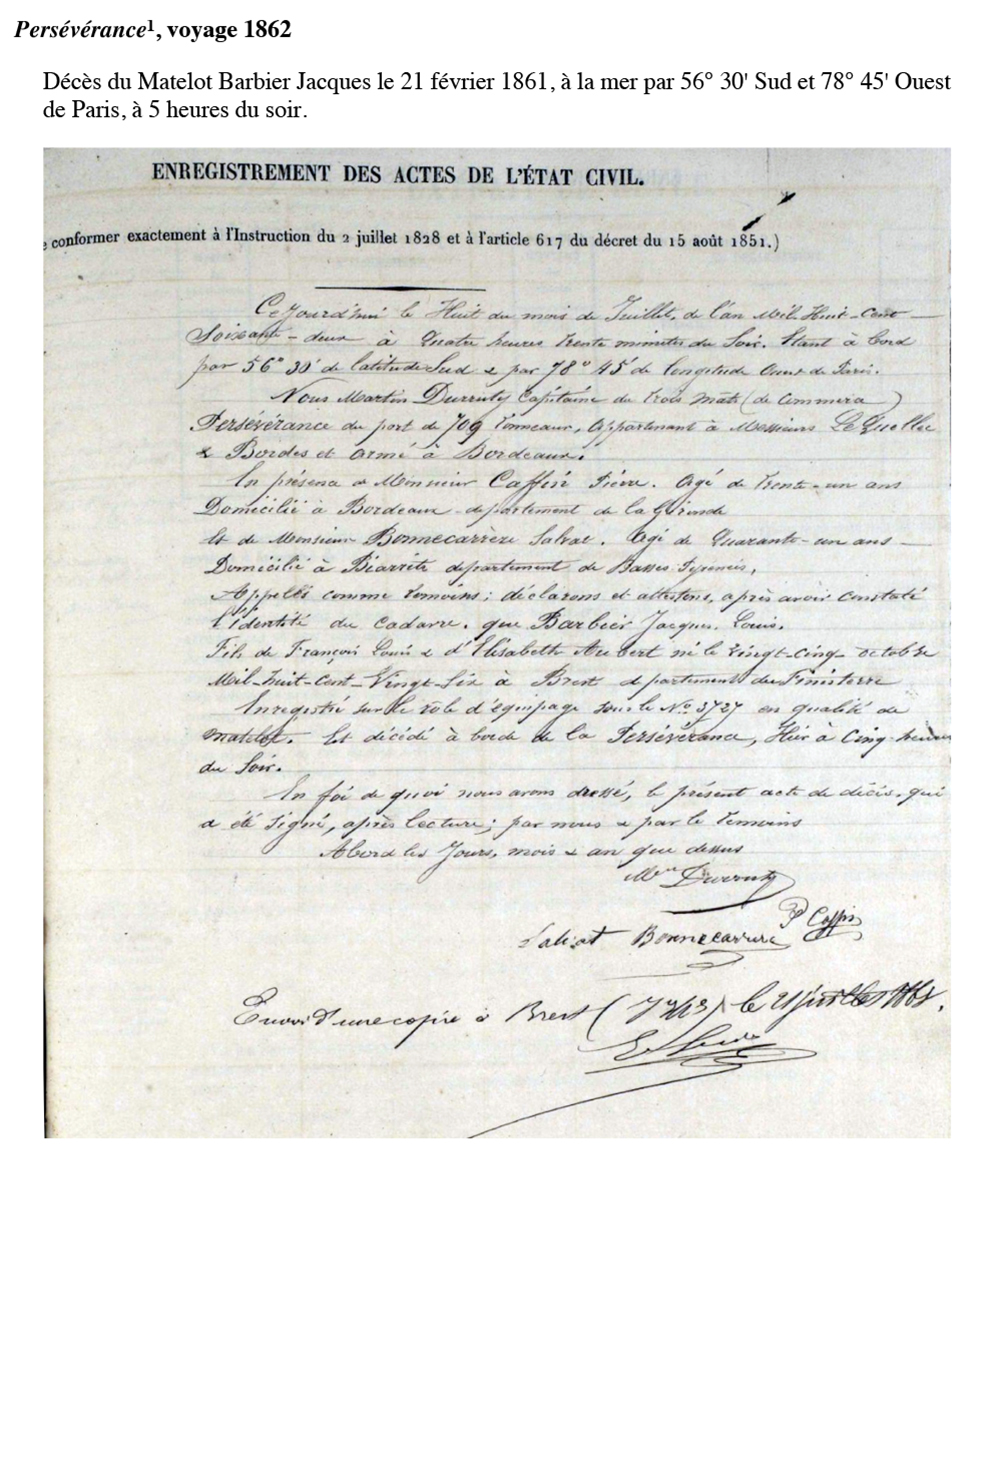 Persévérance1, voyage 1862
Décès du Matelot Barbier Jacques le 21 février 1861, à la mer par 56° 30' Sud et 78° 45' Ouest
de Paris, à 5 heures du soir.
ENREGISTREMENT DES ACTES DE L'ÉTAT CIVIL.
e conformer exactement à l'Instruction du 2 juillet 1828 et à l'article 617 du décret du 15 août 1851.)
Ce Jourd'hui le Huit du mois de Juillet, de l'an Mil Huit-Cent
Soixante-deux à Quatre heures trente minutes du Soir. Etant à bord
par 56° 30' de latitude Sud & par 78° 45' de longitude Ouest de Paris.
Nous Martin Durruty Capitaine du trois mâts (de Commerce)
Persévérance du port de 709 Tonneaux, Appartenant à Messieurs Le Quellec
& Bordes et armé à Bordeaux.
En présence de Monsieur Caffin Pierre. Agé de trente-un ans
Domicilié à Bordeaux département de la Gironde
Et de Monsieur Bonnecarrère Salvat. Agé de Quarante-un ans
Domicilié à Biarritz département de Basses Pyrénées,
Appellés comme témoins; déclarons et attestons, après avoir constaté
l'identité du Cadavre. que Barbier Jacques. Louis.
Fils de François Louis & d'Elisabeth Aubert né le vingt-cinq octobre
Mil-huit-Cent-Vingt-Six à Brest département du Finisterre
Enregistré sur le rôle d'équipage sous le No 3727 en qualité de
matelot. Est décédé à bord de la Persévérance, Hier à Cinq heures
du Soir.
En foi de quoi nous avons dressé, le présent acte de décès, qui
a été Signé, après lecture; par nous & par le témoins
Abord les Jours, mois & an que dessus
Durruty
P Caffin
Salvat Bonnecarrere
Envoi d'une copie à Brest ( ) le 21 juillet